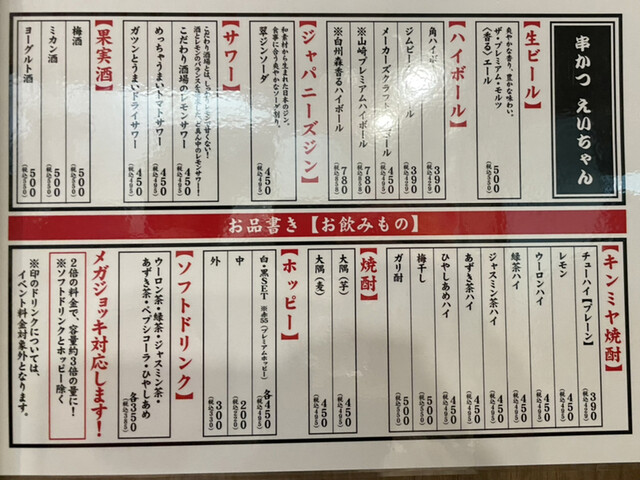 串かつ えいちゃん
【生ビール】
爽やかな香り、豊かな味わい。
ザ・プレミアム・モルツ
〈香る〉エール 500(税込550)
【ハイボール】
角ハイボール 390(税込429)
ジムビームハイボール 390(税込429)
メーカーズクラフトハイボール 450(税込495)
※山崎プレミアムハイボール 780
※白州森香るハイボール 780
【ジャパニーズジン】
和素材から生まれた日本のジン。
食事に合う爽やかなソーダ割り。
翠ジンソーダ 450(税込495)
【サワー】
こだわり酒場のレモンサワー 450(税込495)
めっちゃうまいトマトサワー 450(税込495)
ガツンとうまいドライサワー 450(税込495)
【果実酒】
梅酒 500(税込550)
ミカン酒 500(税込550)
ヨーグルト酒 500(税込550)
お品書き【お飲みもの】
【キンミヤ焼酎】
チューハイ【プレーン】 390(税込429)
レモン 450(税込495)
ウーロンハイ 450(税込495)
緑茶ハイ 450(税込495)
ジャスミン茶ハイ 450(税込495)
あずき茶ハイ 450(税込495)
ひやしあめハイ 450(税込495)
梅干し 500(税込550)
ガリ酎 500(税込550)
【焼酎】
大隅(芋) 450(税込495)
大隅(麦) 450(税込495)
【ホッピー】
白・黒SET ※赤55(プレミアムホッピー) 各450(税込495)
中 200(税込220)
外 300(税込330)
【ソフトドリンク】
ウーロン茶・緑茶・ジャスミン茶・
あずき茶・ペプシコーラ・ひやしあめ
各350(税込385)
メガジョッキ対応します!
2倍の料金で、容量約3倍の量に!
※ソフトドリンクとホッピー除く
※印のドリンクについては、
イベント料金対象外となります。